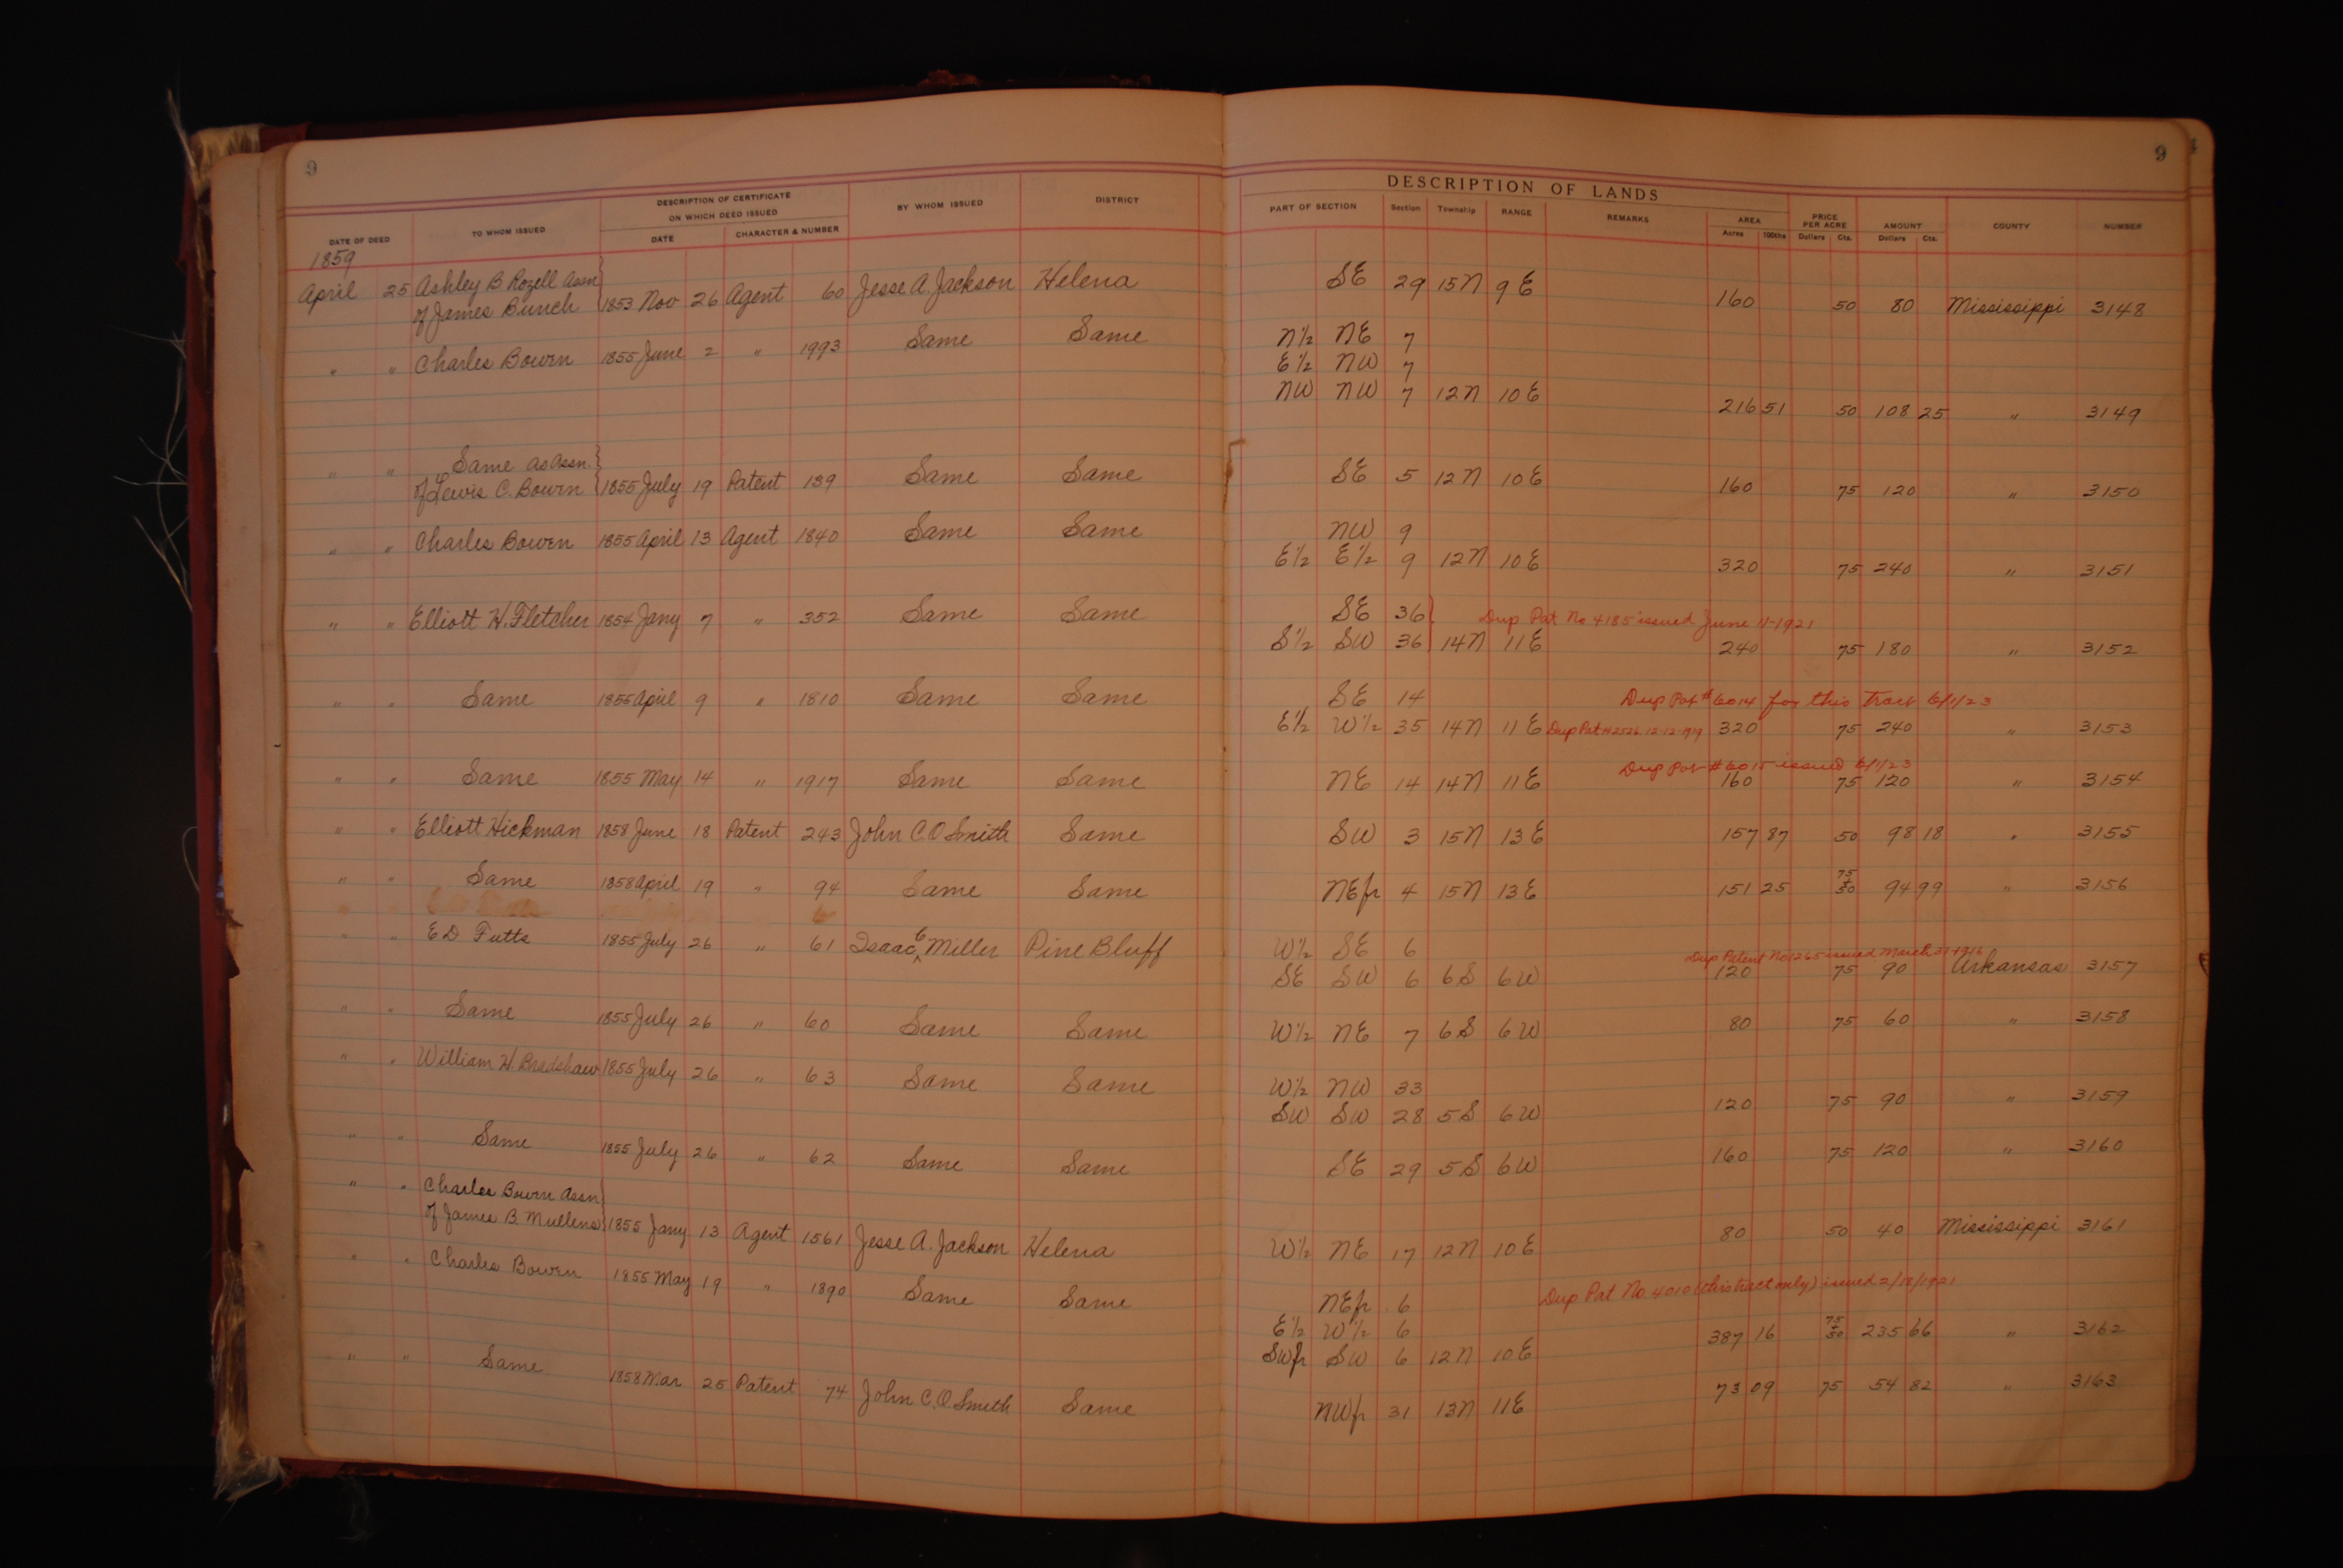 9
9
DESCRIPTION OF LANDS
DATE OF DEED TO WHOM ISSUED DESCRIPTION OF CERTIFICATE ON WHICH DEED ISSUED DATE CHARACTER & NUMBER BY WHOM ISSUED DISTRICT PART OF SECTION Section Township RANGE REMARKS AREA Acres 100ths PRICE PER ACRE Dollars Cts. AMOUNT Dollars Cts. COUNTY NUMBER
1859
April 25 Ashley B Rozell Assn
of James Bunch 1853 Nov 26 Agent 60 Jesse A. Jackson Helena SE 29 15N 9E 160 50 80 Mississippi 3148
" " Charles Bowen 1855 June 2 " 1993 Same Same N½ NE 7
E½ NW 7
NW NW 7 12N 10E 216 51 50 108 25 " 3149
" " Same as Assn.
of Lewis C. Bowen 1855 July 19 Patent 139 Same Same SE 5 12N 10E 160 75 120 " 3150
" " Charles Bowen 1855 April 13 Agent 1840 Same Same NW 9
E½ E½ 9 12N 10E 320 75 240 " 3151
" " Elliott H. Fletcher 1854 Jany 7 " 352 Same Same SE 36 Dup Pat No 4185 issued June 11-1921
S½ SW 36 14N 11E 240 75 180 " 3152
" " Same 1855 April 9 " 1810 Same Same SE 14 Dup Pat # 6014 for this Tract 6/1/23
E½ W½ 35 14N 11E Dup Pat # 2526 12-12-1919 320 75 240 " 3153
Dup Pat # 6015 issued 6/1/23
" " Same 1855 May 14 " 1917 Same Same NE 14 14N 11E 160 75 120 " 3154
" " Elliott Hickman 1858 June 18 Patent 243 John C O Smith Same SW 3 15N 13E 157 87 50 98 18 " 3155
" " Same 1858 April 19 " 94 Same Same NEfr 4 15N 13E 151 25 75 50 94 99 " 3156
" " E D Futts 1855 July 26 " 61 Isaac C Miller Pine Bluff W½ SE 6 Dup Patent No 1265 issued March 31-1916
SE SW 6 6S 6W 120 75 90 Arkansas 3157
" " Same 1855 July 26 " 60 Same Same W½ NE 7 6S 6W 80 75 60 " 3158
" " William H. Bradshaw 1855 July 26 " 63 Same Same W½ NW 33
SW SW 28 5S 6W 120 75 90 " 3159
" " Same 1855 July 26 " 62 Same Same SE 29 5S 6W 160 75 120 " 3160
" " Charles Bowen Assn
of James B. Mullens 1855 Jany 13 Agent 1561 Jesse A. Jackson Helena W½ NE 17 12N 10E 80 50 40 Mississippi 3161
" " Charles Bowen 1855 May 19 " 1890 Same Same NEfr 6 Dup Pat No 4010 (this tract only) issued 2/18/1921
E½ W½ 6
SWfr SW 6 12N 10E 387 16 75 50 235 66 " 3162
" " Same 1858 Mar 25 Patent 74 John C. O. Smith Same NWfr 31 13N 11E 73 09 75 54 82 " 3163